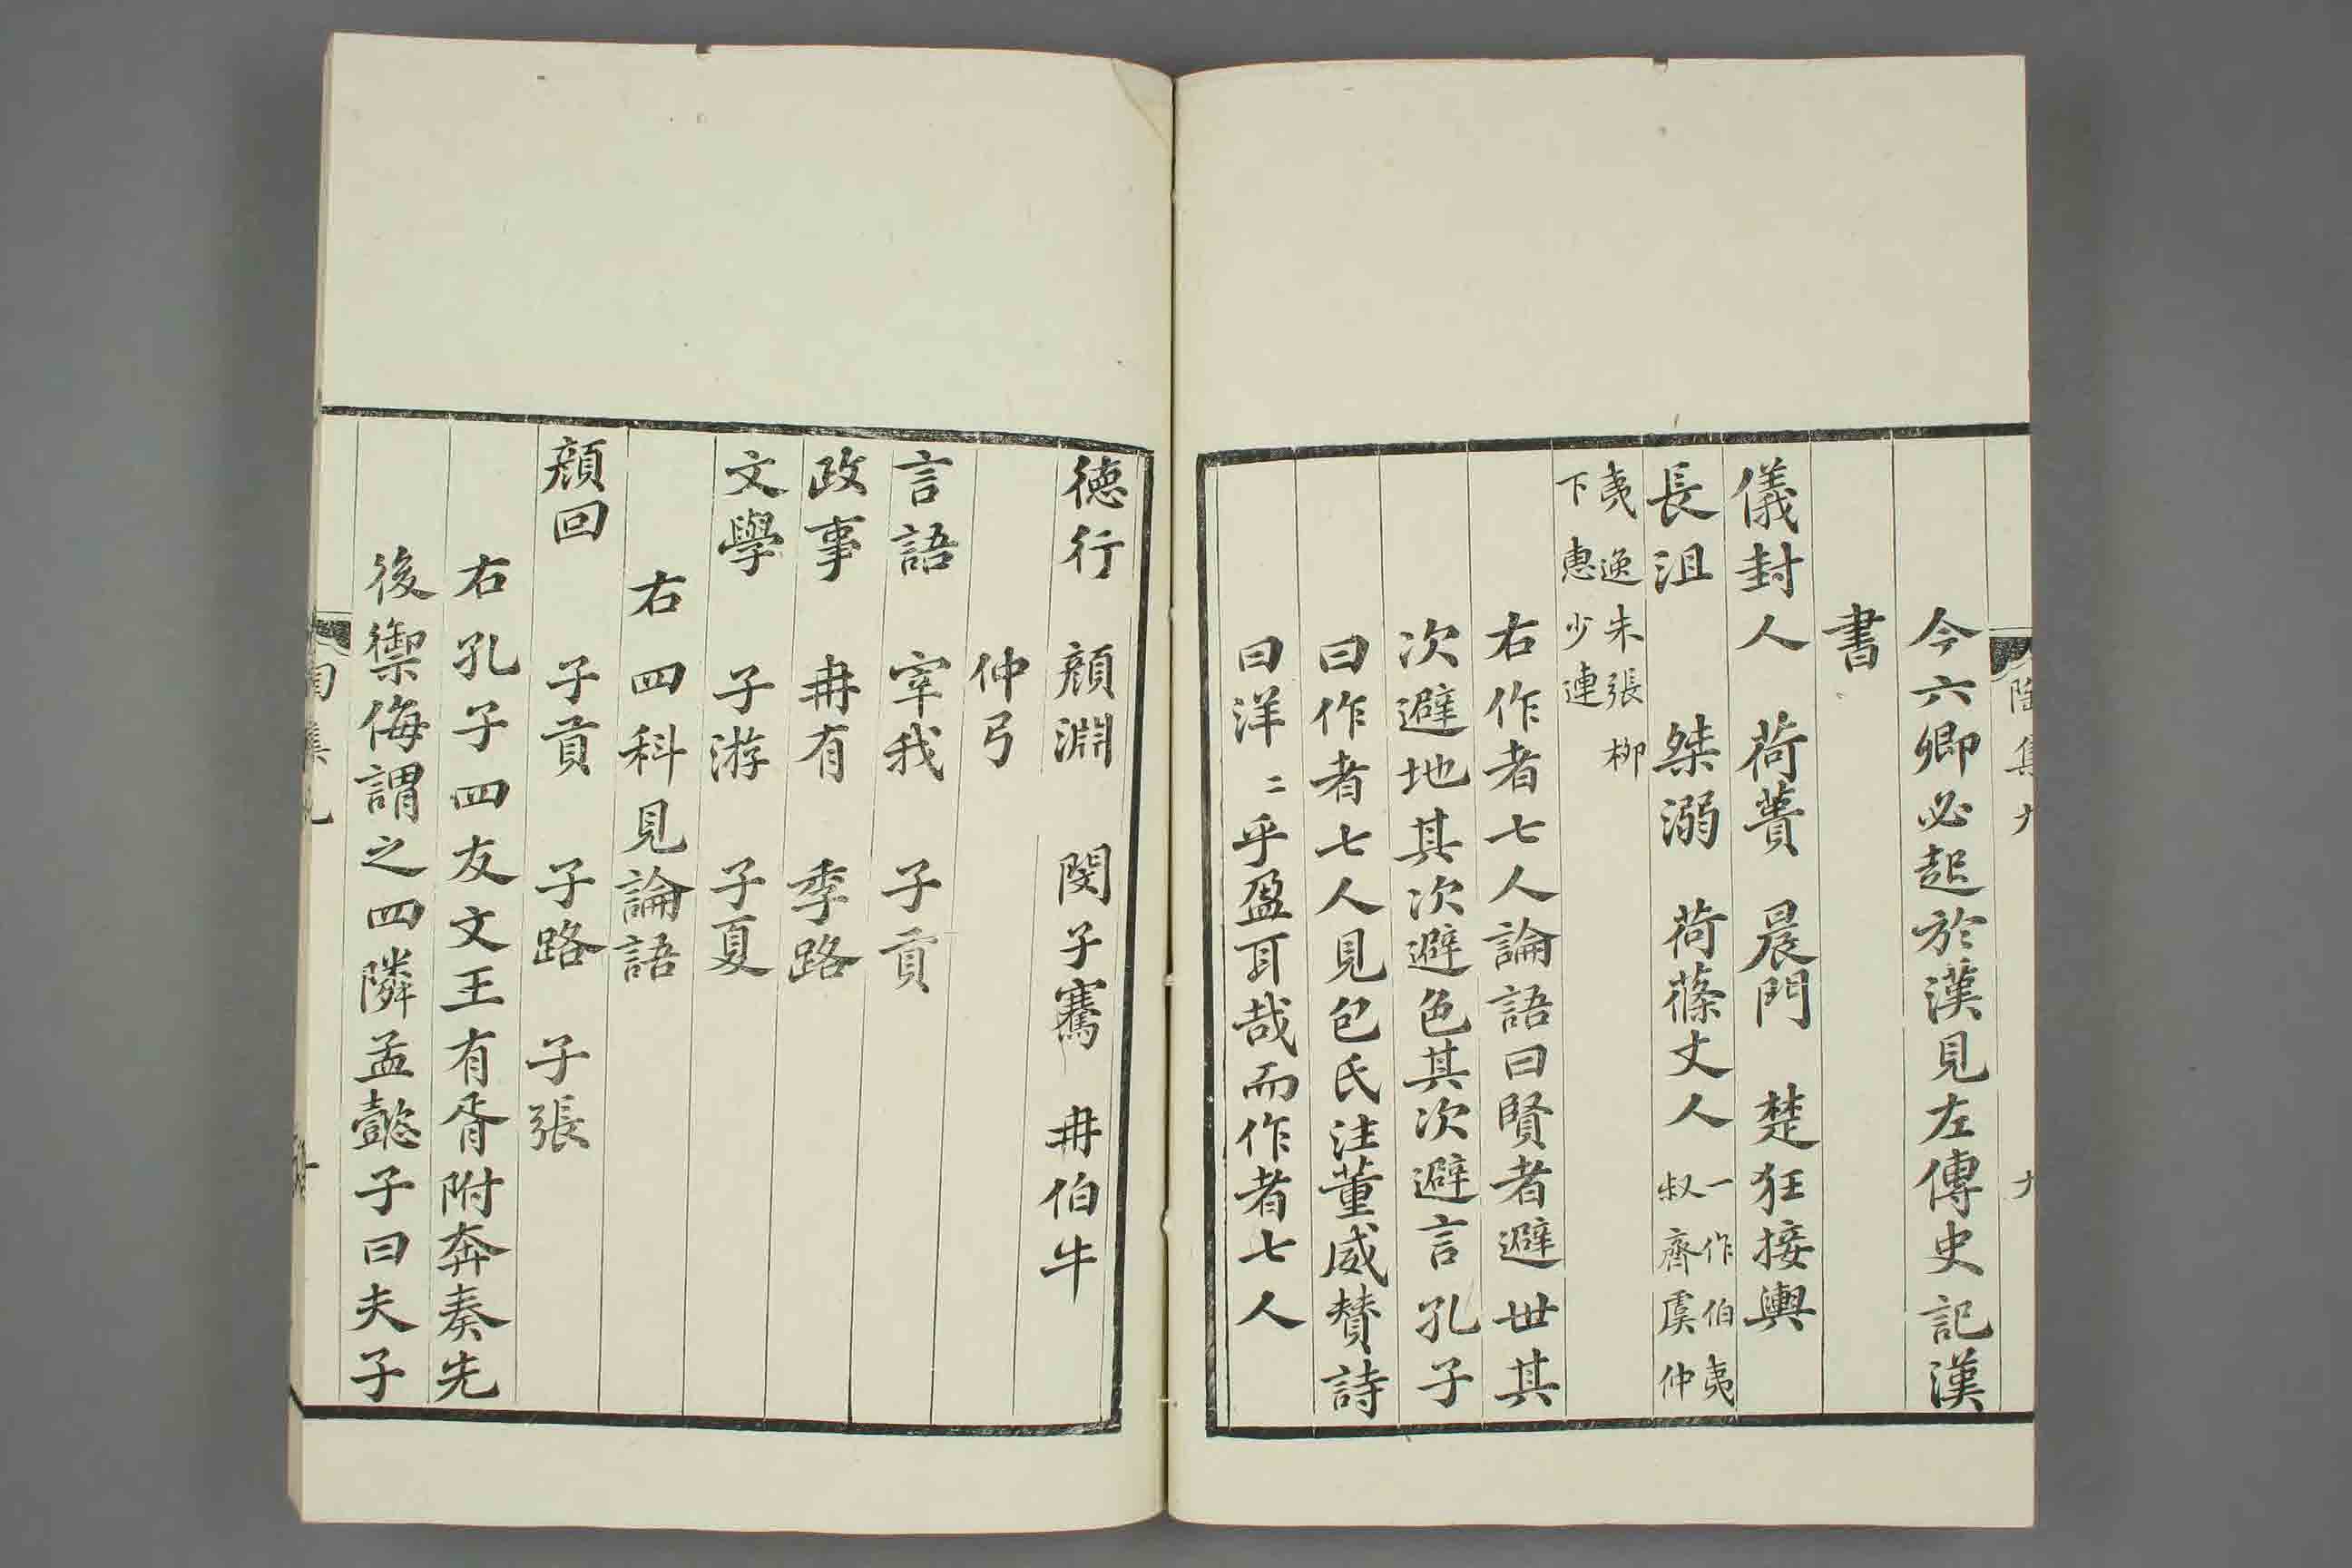 今六卿必起於漢見左傳史記漢
書
儀封人 荷蕢 晨門 楚狂接輿
長沮 桀溺 荷蓧丈人 一作伯夷
叔齊虞仲
夷逸朱張柳
下惠少連
右作者七人論語曰賢者避世其
次避地其次避色其次避言孔子
曰作者七人見包氏注董威贊詩
曰洋〻乎盈耳哉而作者七人
德行 顏淵 閔子騫 冉伯牛
仲弓
言語 宰我 子貢
政事 冉有 季路
文學 子游 子夏
右四科見論語
顏回 子貢 子路 子張
右孔子四友文王有胥附奔奏先
後禦侮謂之四隣孟懿子曰夫子